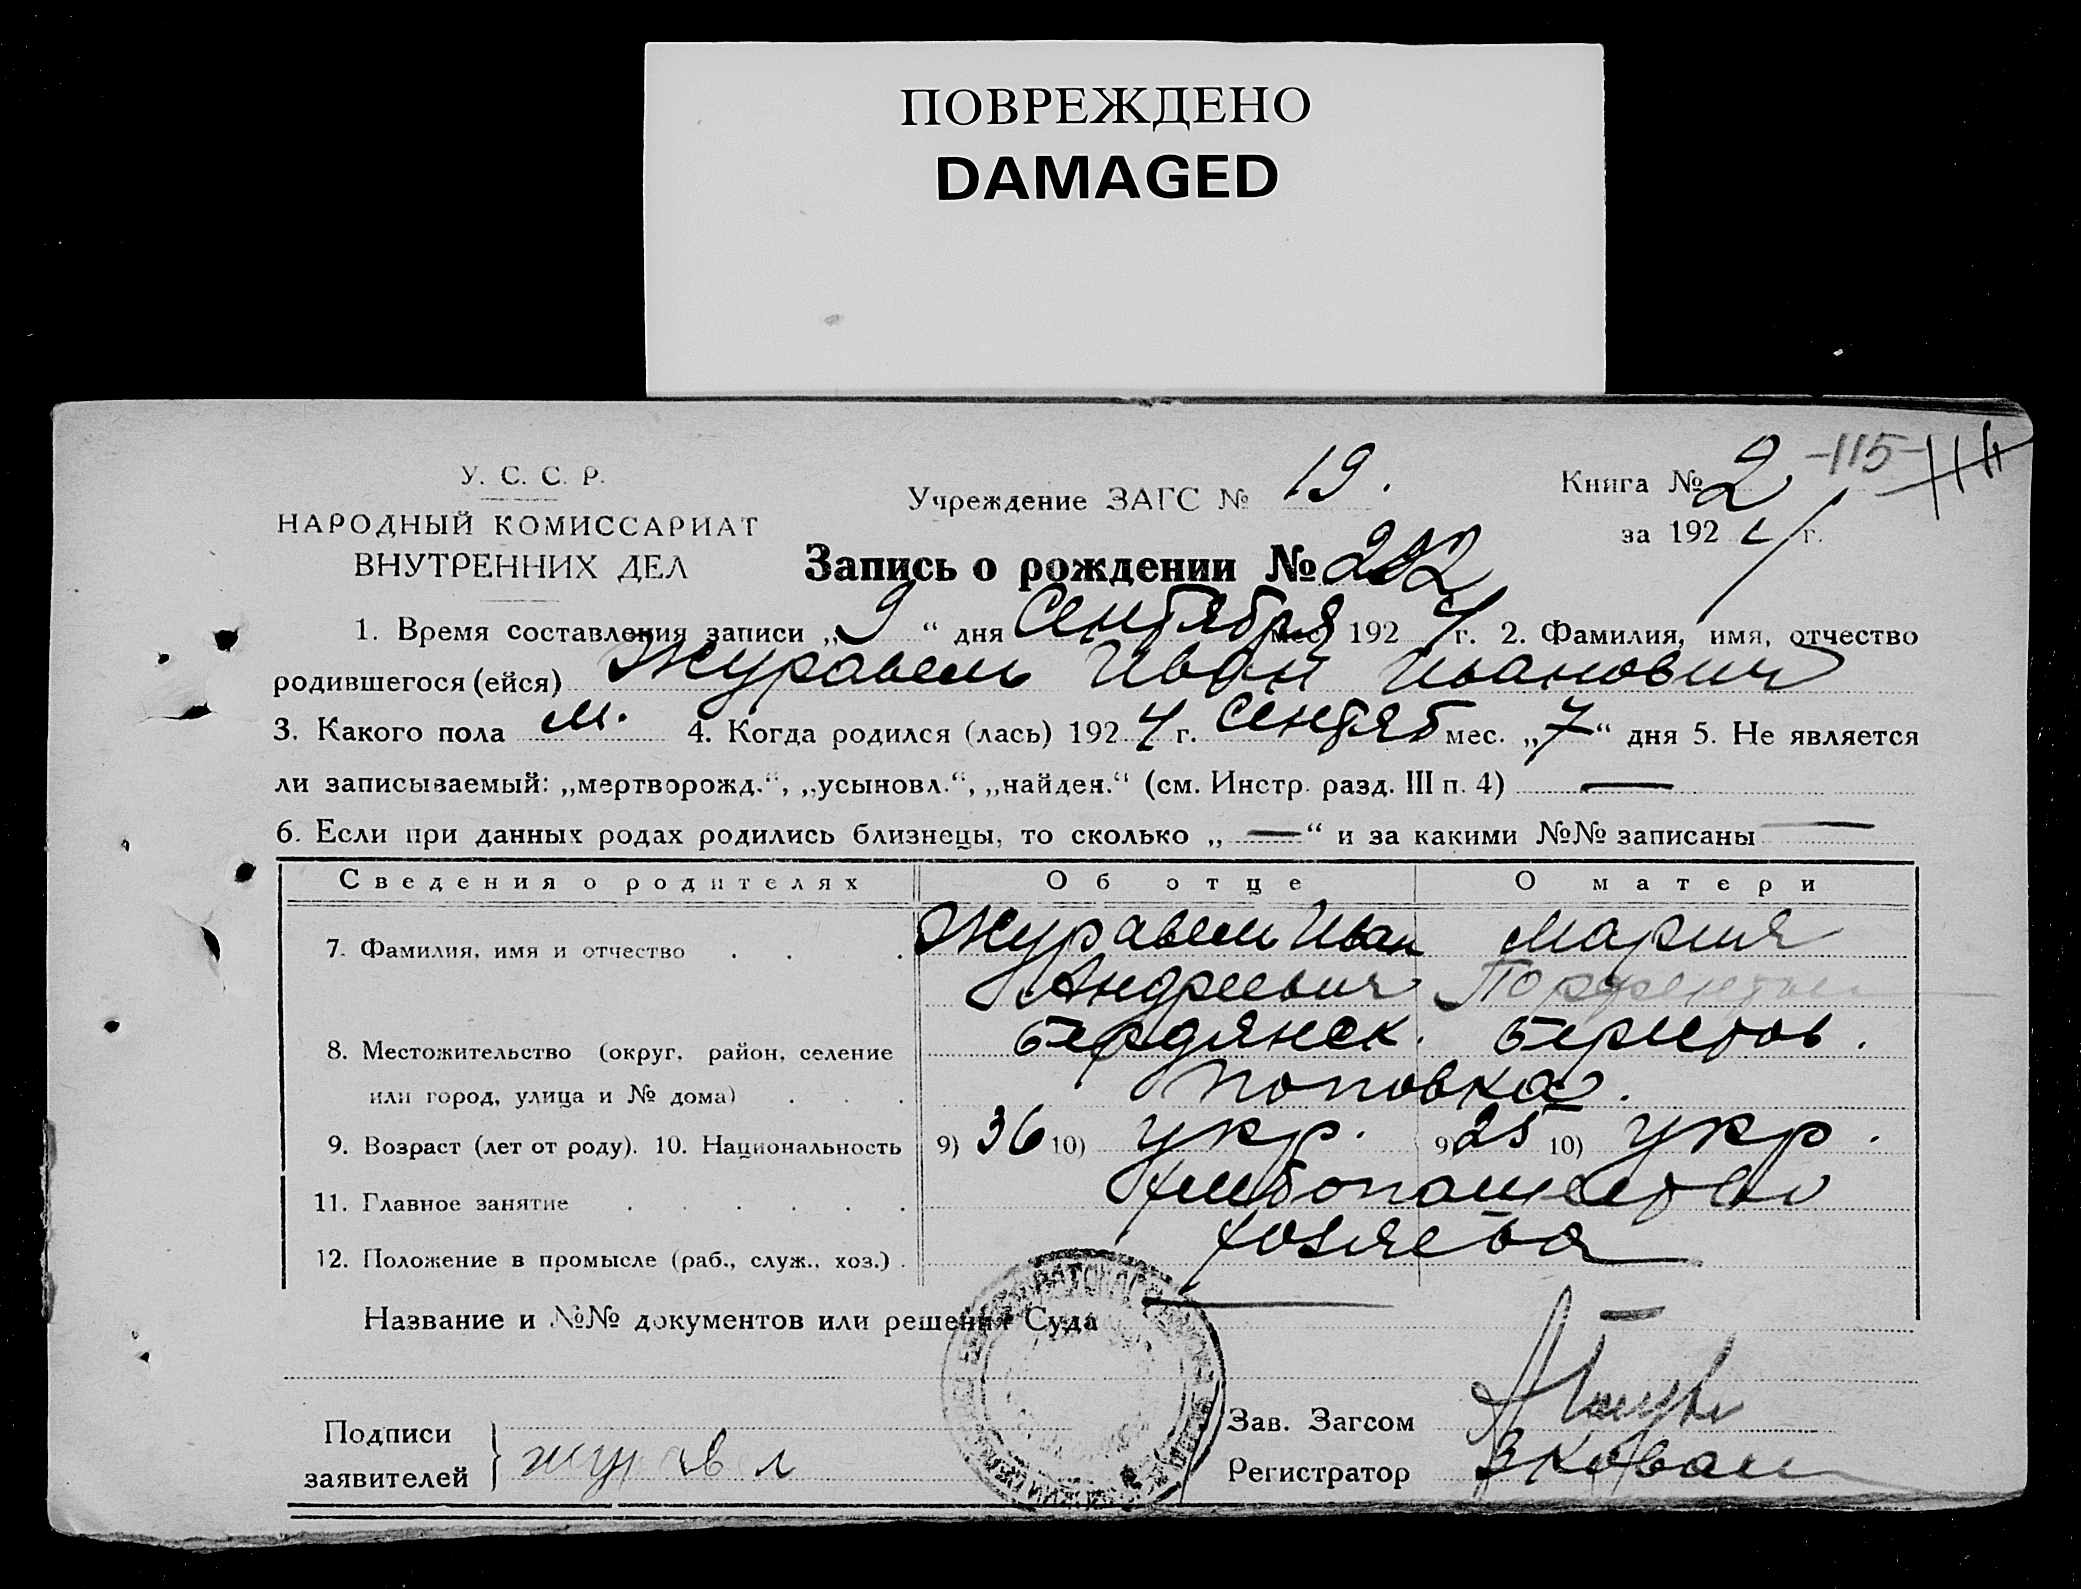 ПОВРЕЖДЕНО
DAMAGED
У. С. С. Р.
НАРОДНЫЙ КОМИССАРИАТ
ВНУТРЕННИХ ДЕЛ
Учреждение ЗАГС № 19.
Книга № 2 -115-
за 1924 г.
Запись о рождении № 202
1. Время составления записи „9“ дня Сентября мес. 1924 г. 2. Фамилия, имя, отчество
родившегося (ейся) Журавель Иван Иванович
3. Какого пола м. 4. Когда родился (лась) 1924 г. Сентяб мес. „7“ дня 5. Не является
ли записываемый: „мертворожд.“, „усыновл.“, „найден.“ (см. Инстр. разд. III п. 4) —
6. Если при данных родах родились близнецы, то сколько „—“ и за какими №№ записаны —
Сведения о родителях Об отце О матери
7. Фамилия, имя и отчество Журавель Иван Мария
Андреевич
8. Местожительство (округ, район, селение Бердянск.
или город, улица и № дома) Поповка.
9. Возраст (лет от роду). 10. Национальность 9) 36 10) укр. 9) 25 10) укр.
11. Главное занятие хлебопашество
12. Положение в промысле (раб., служ., хоз.) хозяева
Название и №№ документов или решения Суда —
Подписи
заявителей
Зав. Загсом
Регистратор